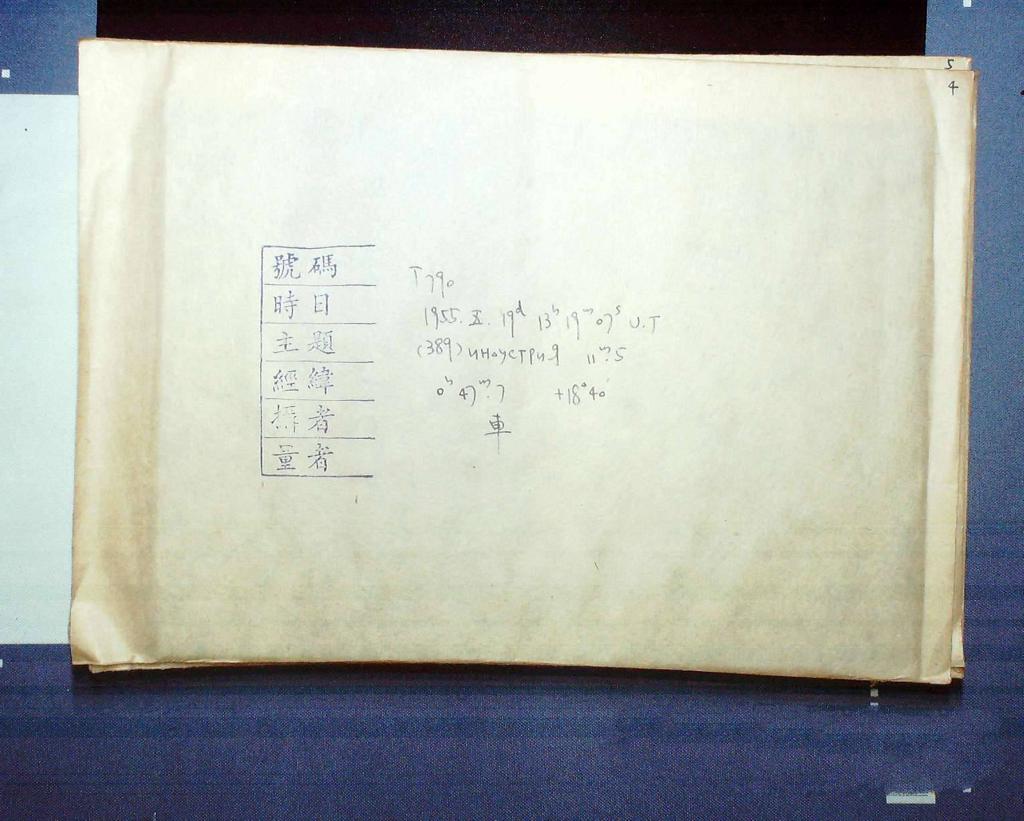 5
4
號碼 T790
時日 1955. X. 19ᵈ 13ʰ 19ᵐ 07ˢ U.T
主題 (389) ИНДУСТРИЯ 11ᵐ.5
經緯 0ʰ 47ᵐ.7 +18°40'
攝者 車
量者